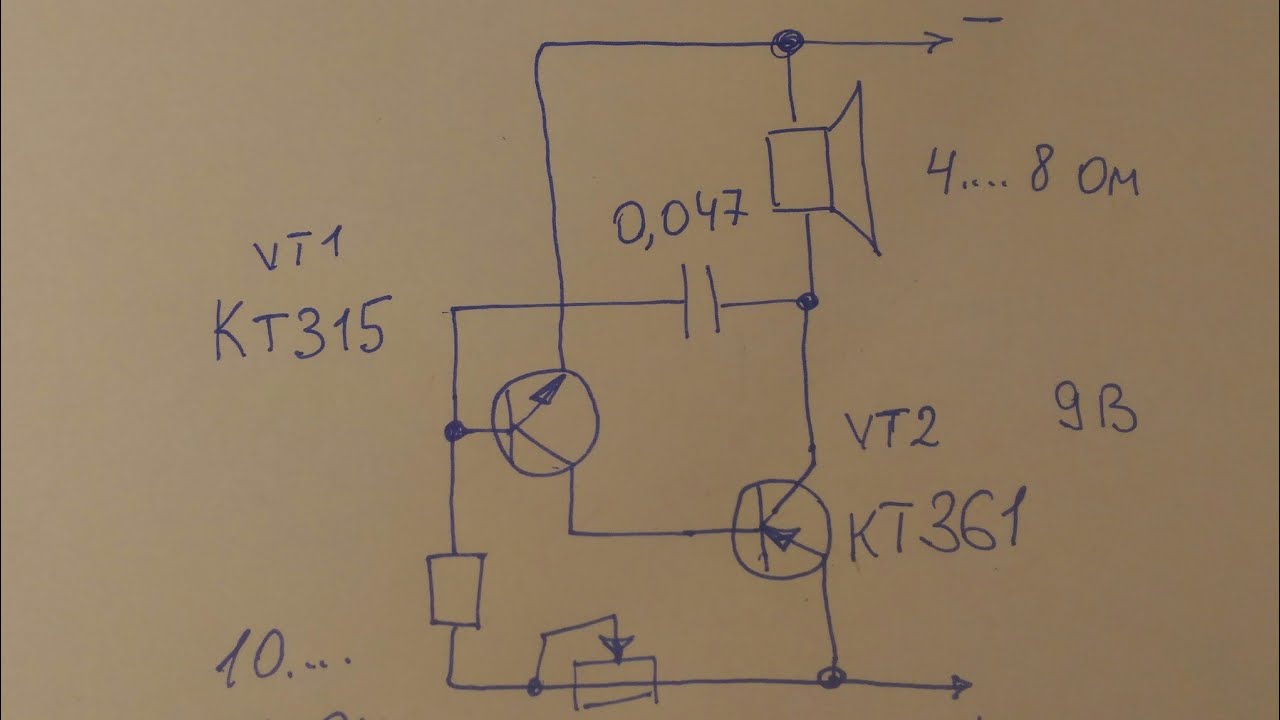 −
4.... 8 Ом
0,047
VT1
КТ315
VT2
9В
КТ361
10....